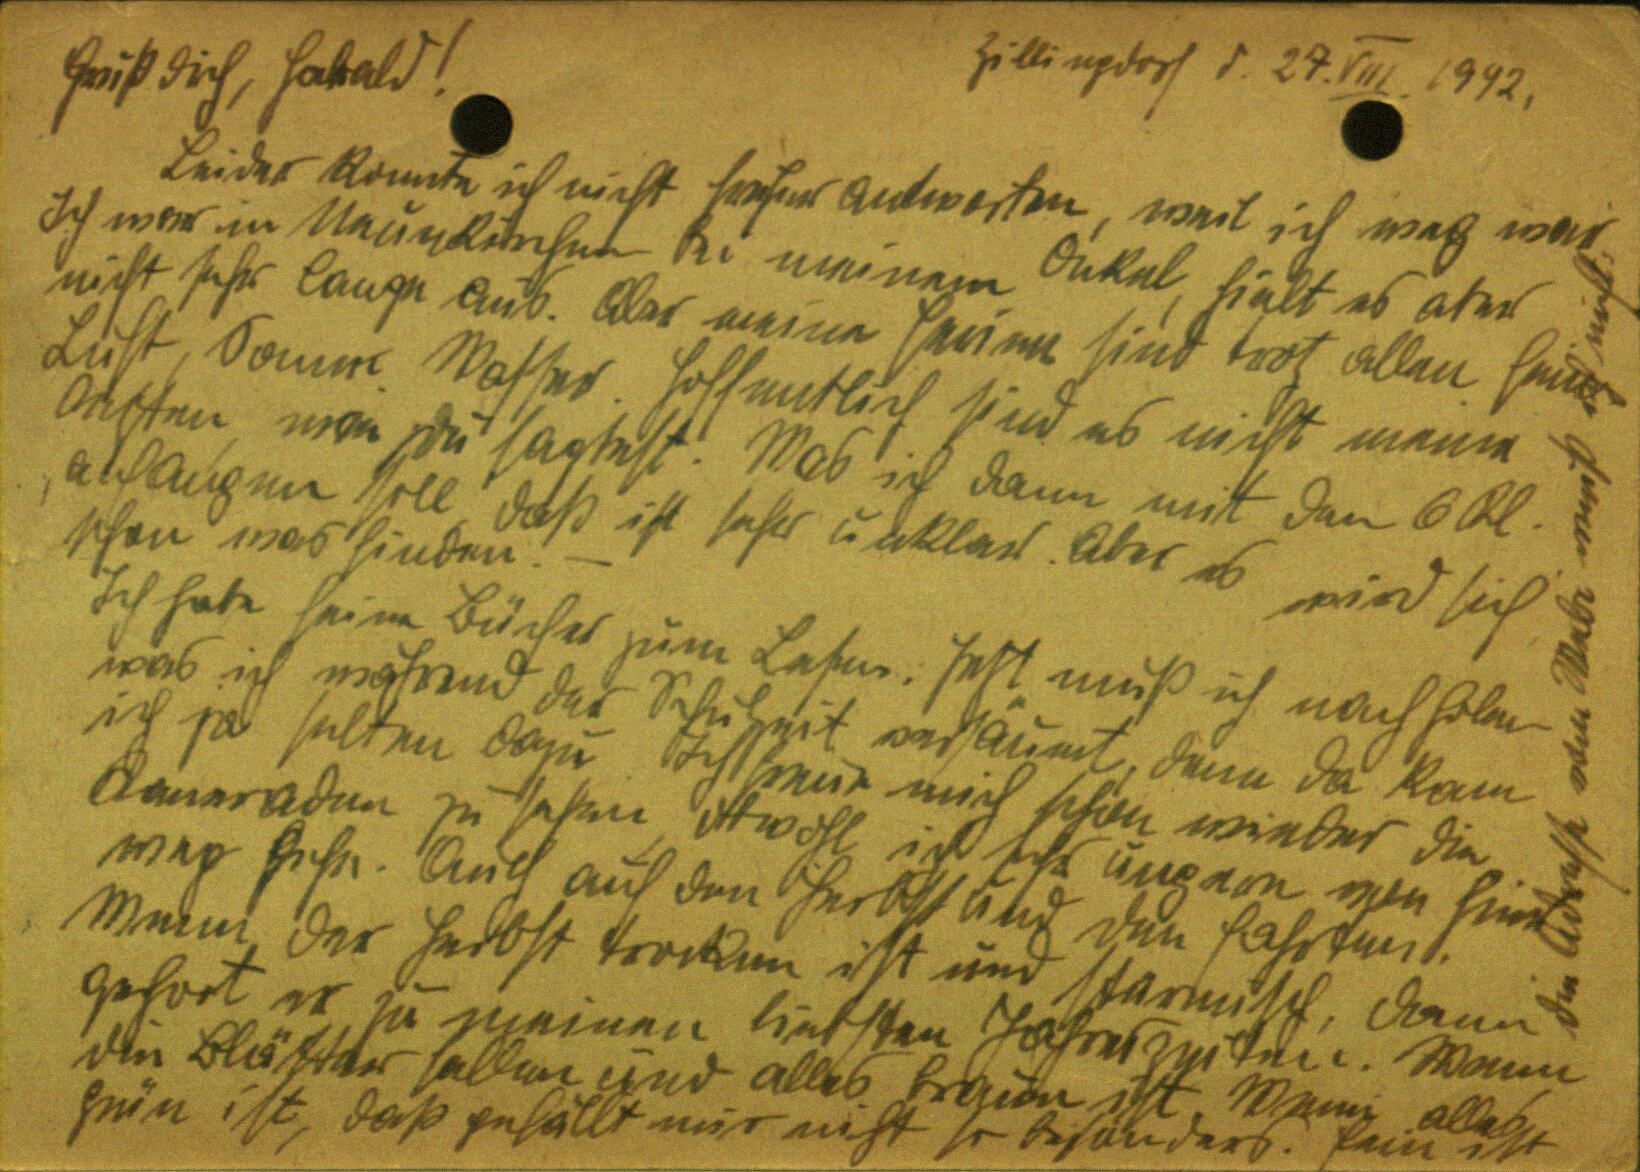 Grüß dich, Harald!
Zillingdorf d. 27. VIII. 1942.
Leider konnte ich nicht früher antworten, weil ich weg war.
Ich war in Neunkirchen bei meinem Onkel, hielt es aber
nicht sehr lange aus. Aber meine Ferien sind trotz allem
Luft, Sonne, Wasser. Hoffentlich sind es nicht meine
letzten wie Du sagtest. Was ich dann mit den 6 Kl.
anfangen soll daß ist sehr unklar. Aber es wird sich
schon was finden. —
Ich habe feine Bücher zum Lesen. Jetzt muß ich nachholen
was ich während der Schulzeit versäumt, denn da kam
ich ja selten dazu. Ich freue mich schon wieder die
Kameraden zu sehen, obwohl ich sehr ungern von hier
weg gehe. Auch auf den Herbst und den Fahrten.
Wenn der Herbst trocken ist und stürmisch, dann
gehört er zu meinen liebsten Jahreszeiten. Wenn
die Blätter fallen und alles braun ist. Wenn alles
grün ist, daß gefällt mir nicht so besonders. Fein ist
die Adresse von